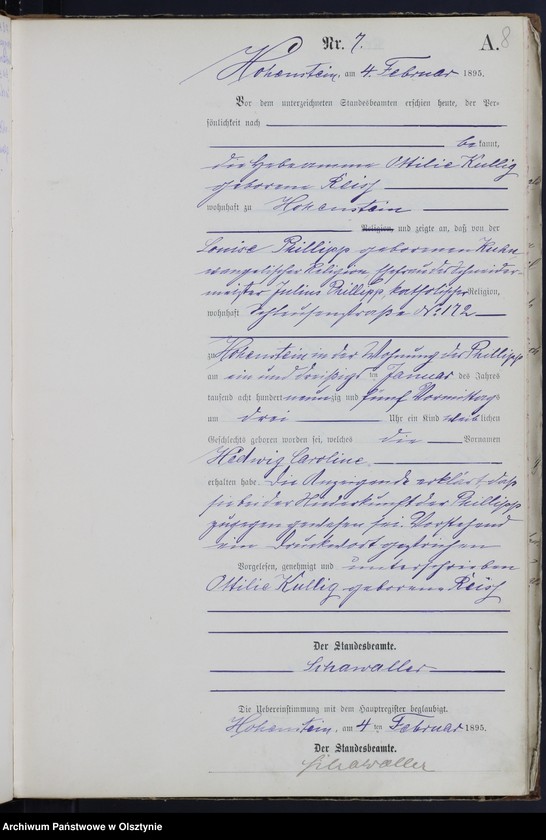 Nr. 7.
A. 8
Hohenstein, am 4. Februar 1895.
Vor dem unterzeichneten Standesbeamten erschien heute, der Per-
sönlichkeit nach
bekannt,
die Hebeamme Ottilie Kullig
geborene Reich
wohnhaft zu Hohenstein
Religion, und zeigte an, daß von der
Louise Phillipp geborenen Kuhn
evangelischer Religion Ehefrau des Schneider-
meister Julius Phillipp, katholischer Religion,
wohnhaft Schleusenstraße No 172
zu Hohenstein in der Wohnung des Phillipp
am ein und dreißigst ten Januar des Jahres
tausend acht hundert neunzig und fünf Vormittag
um drei Uhr ein Kind weiblichen
Geschlechts geboren worden sei, welches die Vornamen
Hedwig Caroline
erhalten habe. Die Anzeigende erklärt daß
sie bei der Niederkunft der Phillipp
zugegen gewesen sei. Vorstehend
ein Druckwort gestrichen
Vorgelesen, genehmigt und unterschrieben
Ottilie Kullig geborene Reich
Der Standesbeamte.
Schawaller
Die Uebereinstimmung mit dem Hauptregister beglaubigt.
Hohenstein, am 4 ten Februar 1895.
Der Standesbeamte.
Schawaller
Archiwum Państwowe w Olsztynie